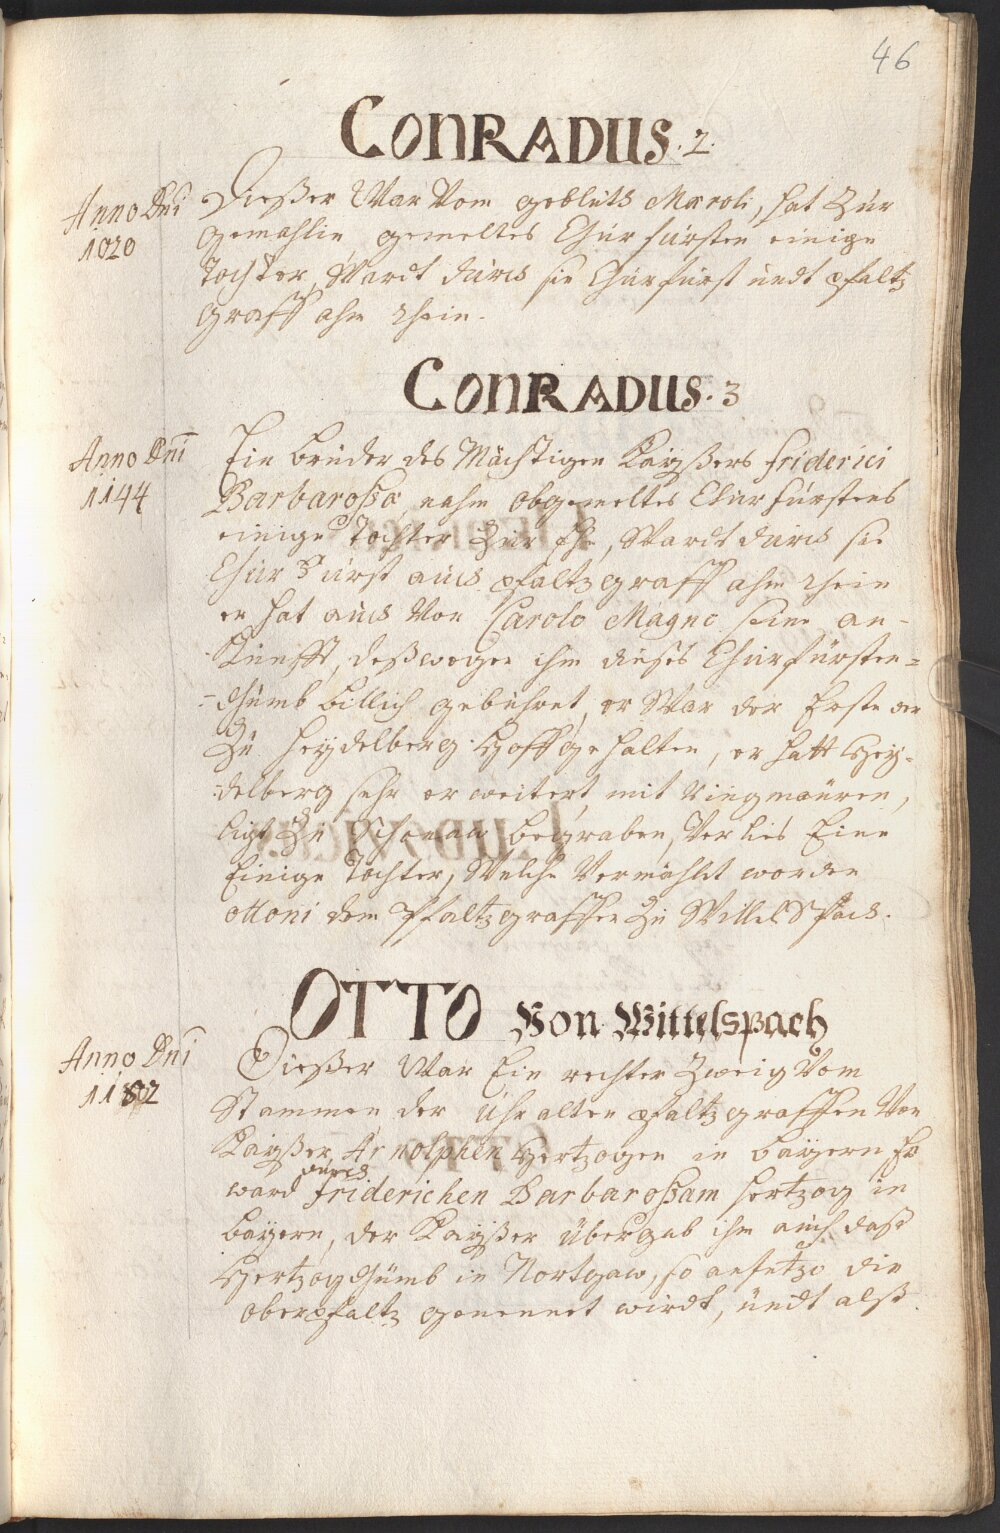 46
CONRADUS. 2.
Anno Dni
1020
Dießer War Vom geblüth Meroli, hat Zur
gemahlin gemeltes Churfürsten einige
Tochter, Wardt durch sie Churfürst undt pfaltz
Graff ahm Rhein.
CONRADUS. 3
Anno Dni
1144
Ein bruder des Mächtigen Kayßers friderici
Barbaroßæ, nahm obgemeltes Churfürstens
einige Tochter Zur Ehe, Wardt durch sie
Chur Fürst auch pfaltzgraff ahm Rhein
er hat auch Von Carolo Magno seine an-
Kunfft, deßwegen ihm dieses Churfürsten=
=thumb billich gebühret, er War der Erste der
Zu Heydelberg Hoff gehalten, er hatt Hey-
delberg sehr erweitert mit Ringmauren,
ligt Zu Schonaw begraben, Verlies Eine
Einige Tochter, Welche Vermählet worden
ottoni dem Pfaltzgraffen Zu WittelsPach.
OTTO Von Wittelspach
Anno Dni
1182
Dießer War Ein rechter Zweig Vom
Stammen der Uhralten pfaltzgraffen Von
Kayßer Arnolphen Hertzogen in bayern Er
ward durch friderichen Barbaroßam Hertzog in
bayern, der Kayßer übergab ihm auch daß
Hertzogthumb in Nortgaw, so anjetzo die
oberpfaltz genennet wirdt, undt alß